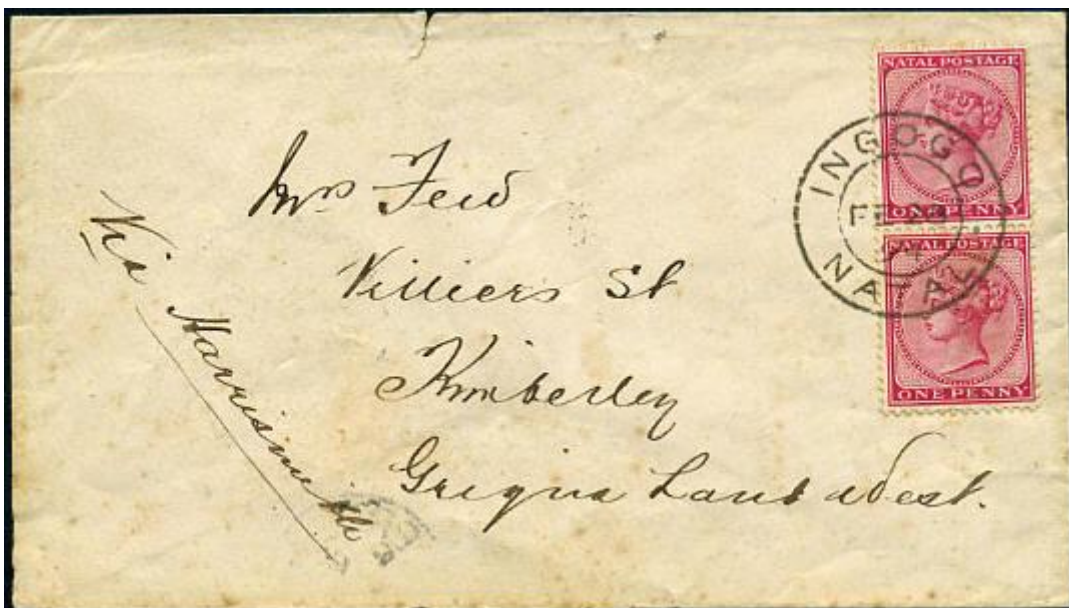 NATAL POSTAGE
ONE PENNY
NATAL POSTAGE
ONE PENNY
INGOGO
FE
NATAL
Mrs
Villiers St
Kimberley
Griqua Land West.
Via